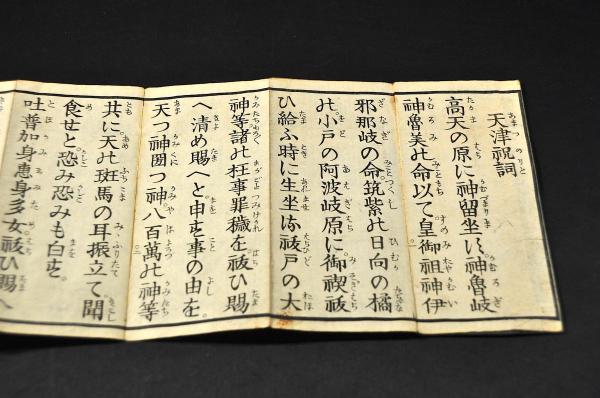 天津祝詞
高天の原に神留坐す神魯岐
神魯美の命以て皇御祖神伊
邪那岐の命筑紫の日向の橘
の小戸の阿波岐原に御禊祓
ひ給ふ時に生坐る祓戸の大
神等諸の枉事罪穢を祓ひ賜
へ清め賜へと申す事の由を
天つ神國つ神八百萬の神等
共に天の斑馬の耳振立て聞
食せと恐み恐みも白す。
吐普加身惠身多女祓ひ賜へ